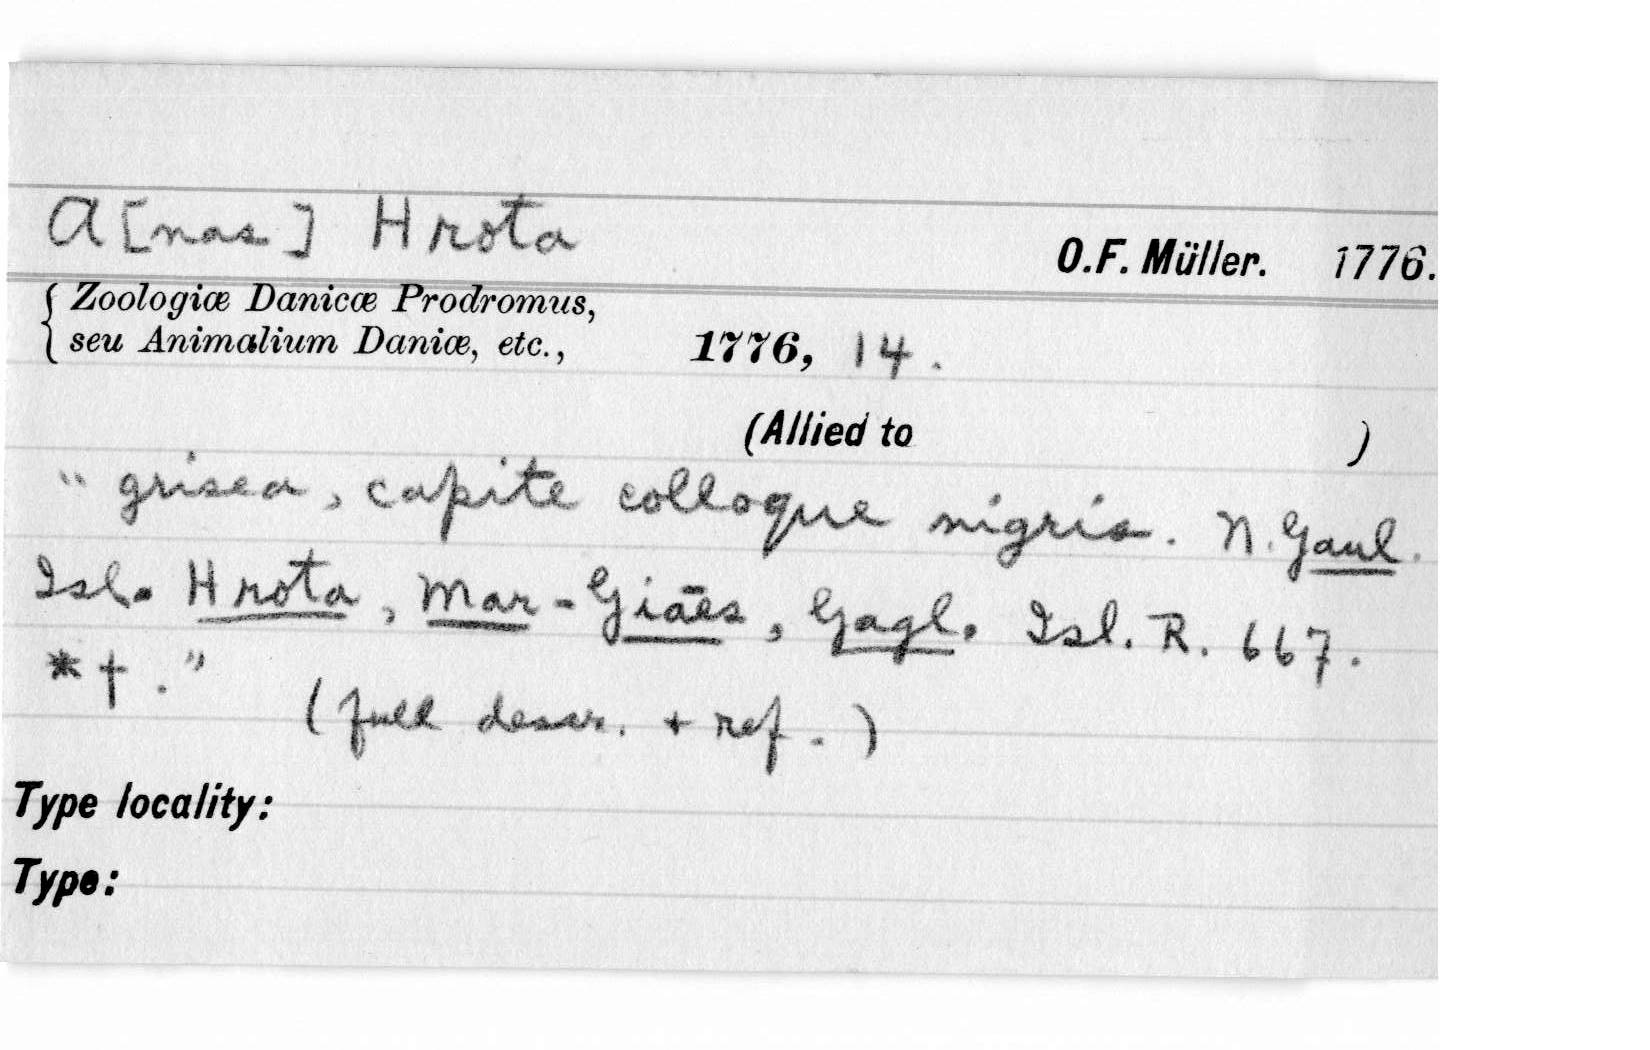 A[nas] Hrota
O.F. Müller. 1776.
{ Zoologiæ Danicæ Prodromus,
{ seu Animalium Daniæ, etc., 1776, 14.
(Allied to )
"grisea, capite colloque nigris. N. Gaul.
Isl. Hrota, Mar-Giāes, Gagl. Isl. R. 667.
*†." (full descr. + ref.)
Type locality:
Type: